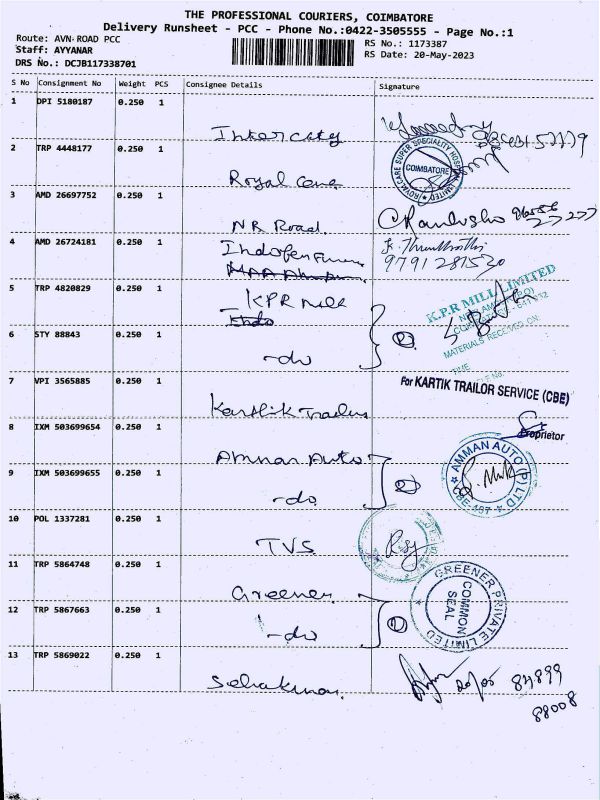 THE PROFESSIONAL COURIERS, COIMBATORE
Delivery Runsheet - PCC - Phone No.:0422-3505555 - Page No.:1
Route: AVN-ROAD PCC
Staff: AYYANAR
DRS No.: DCJB117338701
RS No.: 1173387
RS Date: 20-May-2023
S No Consignment No Weight PCS Consignee Details Signature
1 DPI 5180187 0.250 1
Intercity
2 TRP 4448177 0.250 1
Royal Care
ROYALCARE SUPER SPECIALITY HOSPITAL LIMITED
COIMBATORE
3 AMD 26697752 0.250 1
NR Road.
4 AMD 26724181 0.250 1
Indofen
9791281530
5 TRP 4820829 0.250 1
KPR Mill
K.P.R MILL LIMITED
MATERIALS RECEIVED ON
TIME
6 STY 88843 0.250 1
-do 2
7 VPI 3565885 0.250 1
Karthik Trailor
For KARTIK TRAILOR SERVICE (CBE)
Proprietor
8 IXM 503699654 0.250 1
Amman Auto
AMMAN AUTO (P) LTD
9 IXM 503699655 0.250 1
-do 2
10 POL 1337281 0.250 1
TVS
11 TRP 5864748 0.250 1
Greener
GREENER PRIVATE LIMITED
COMMON
SEAL
12 TRP 5867663 0.250 1
-do
13 TRP 5869022 0.250 1
20/05 84899
88008